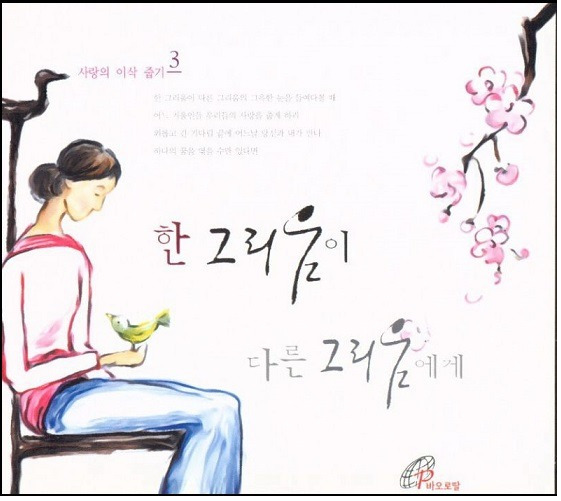 사랑의 이삭 줍기 3
한 그리움이 다른 그리움의 그윽한 눈을 들여다볼 때
어느 겨울인들 우리들의 사랑을 춥게 하리
외롭고 긴 기다림 끝에 어느날 당신과 내가 만나
하나의 꿈을 엮을 수만 있다면
한 그리움이
다른 그리움에게
바오로딸